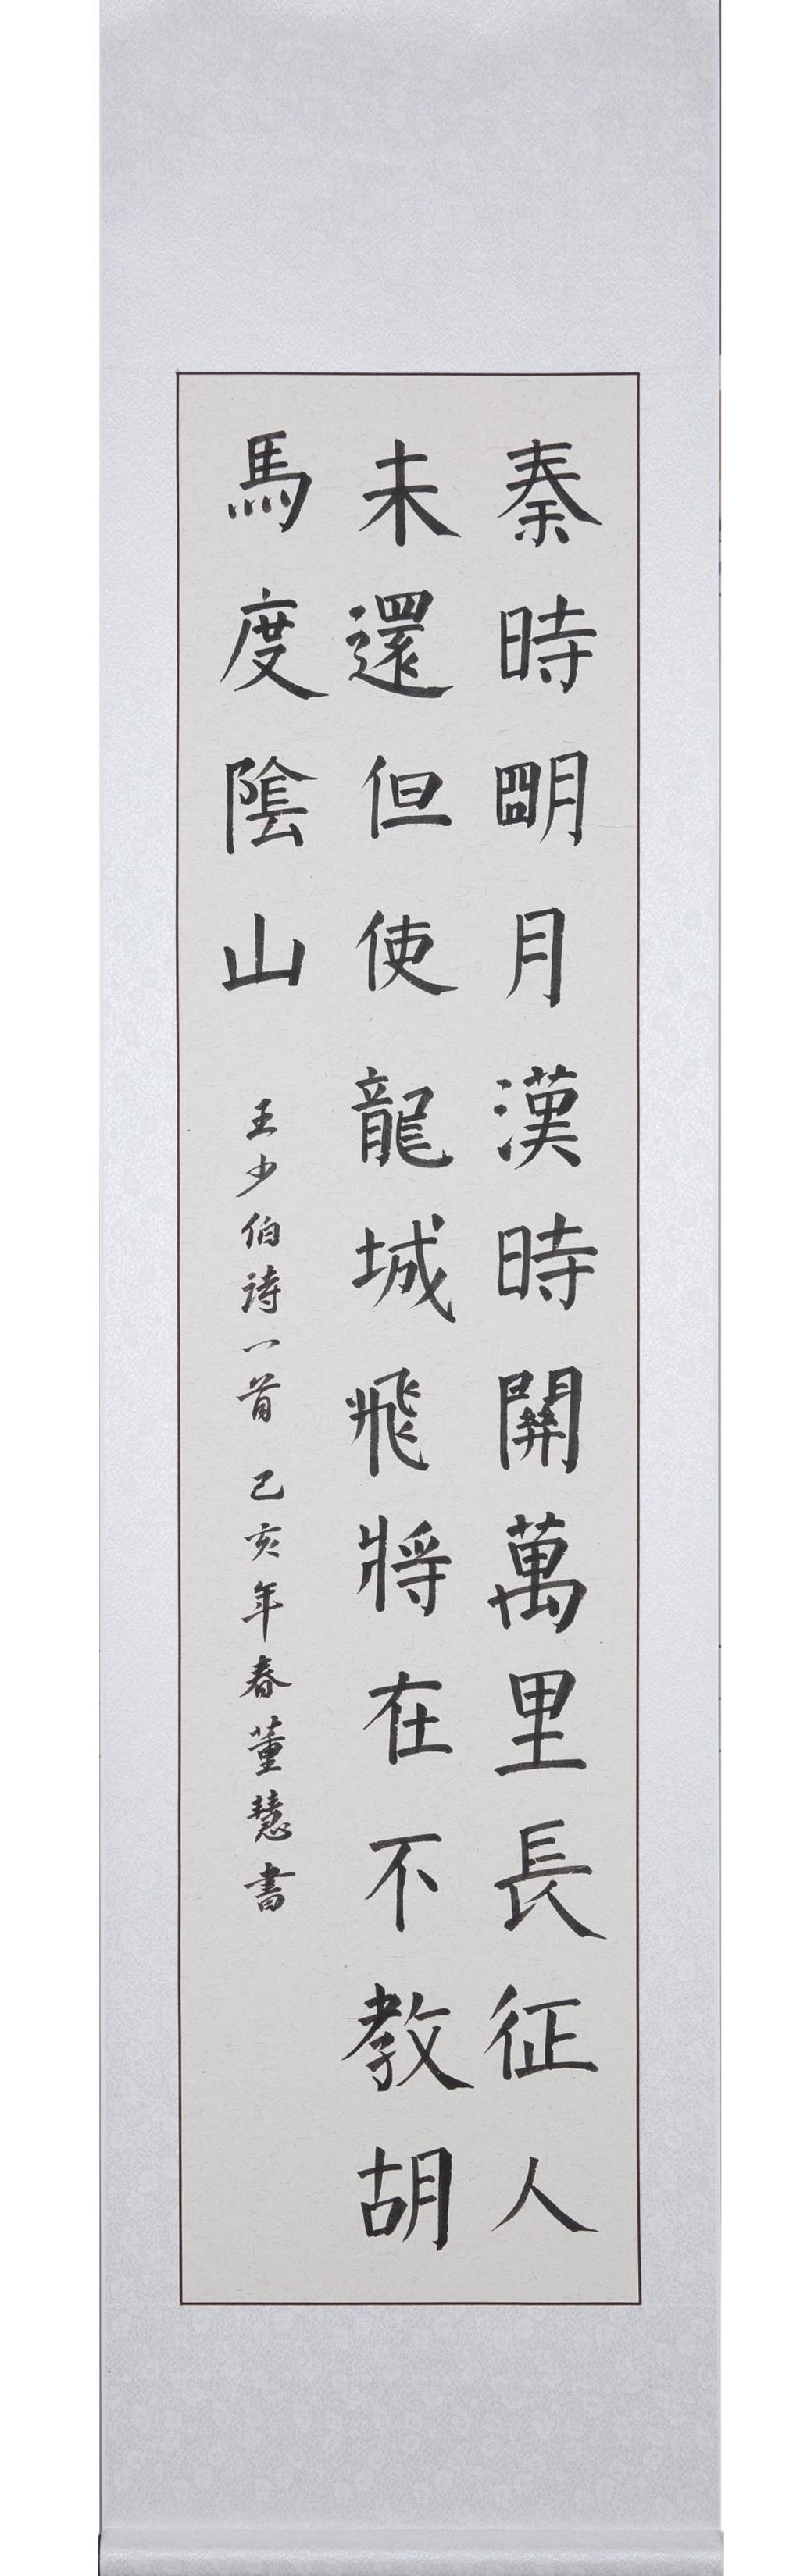 秦時明月漢時關萬里長征人
未還但使龍城飛將在不教胡
馬度陰山
王少伯詩一首 己亥年春董慧書